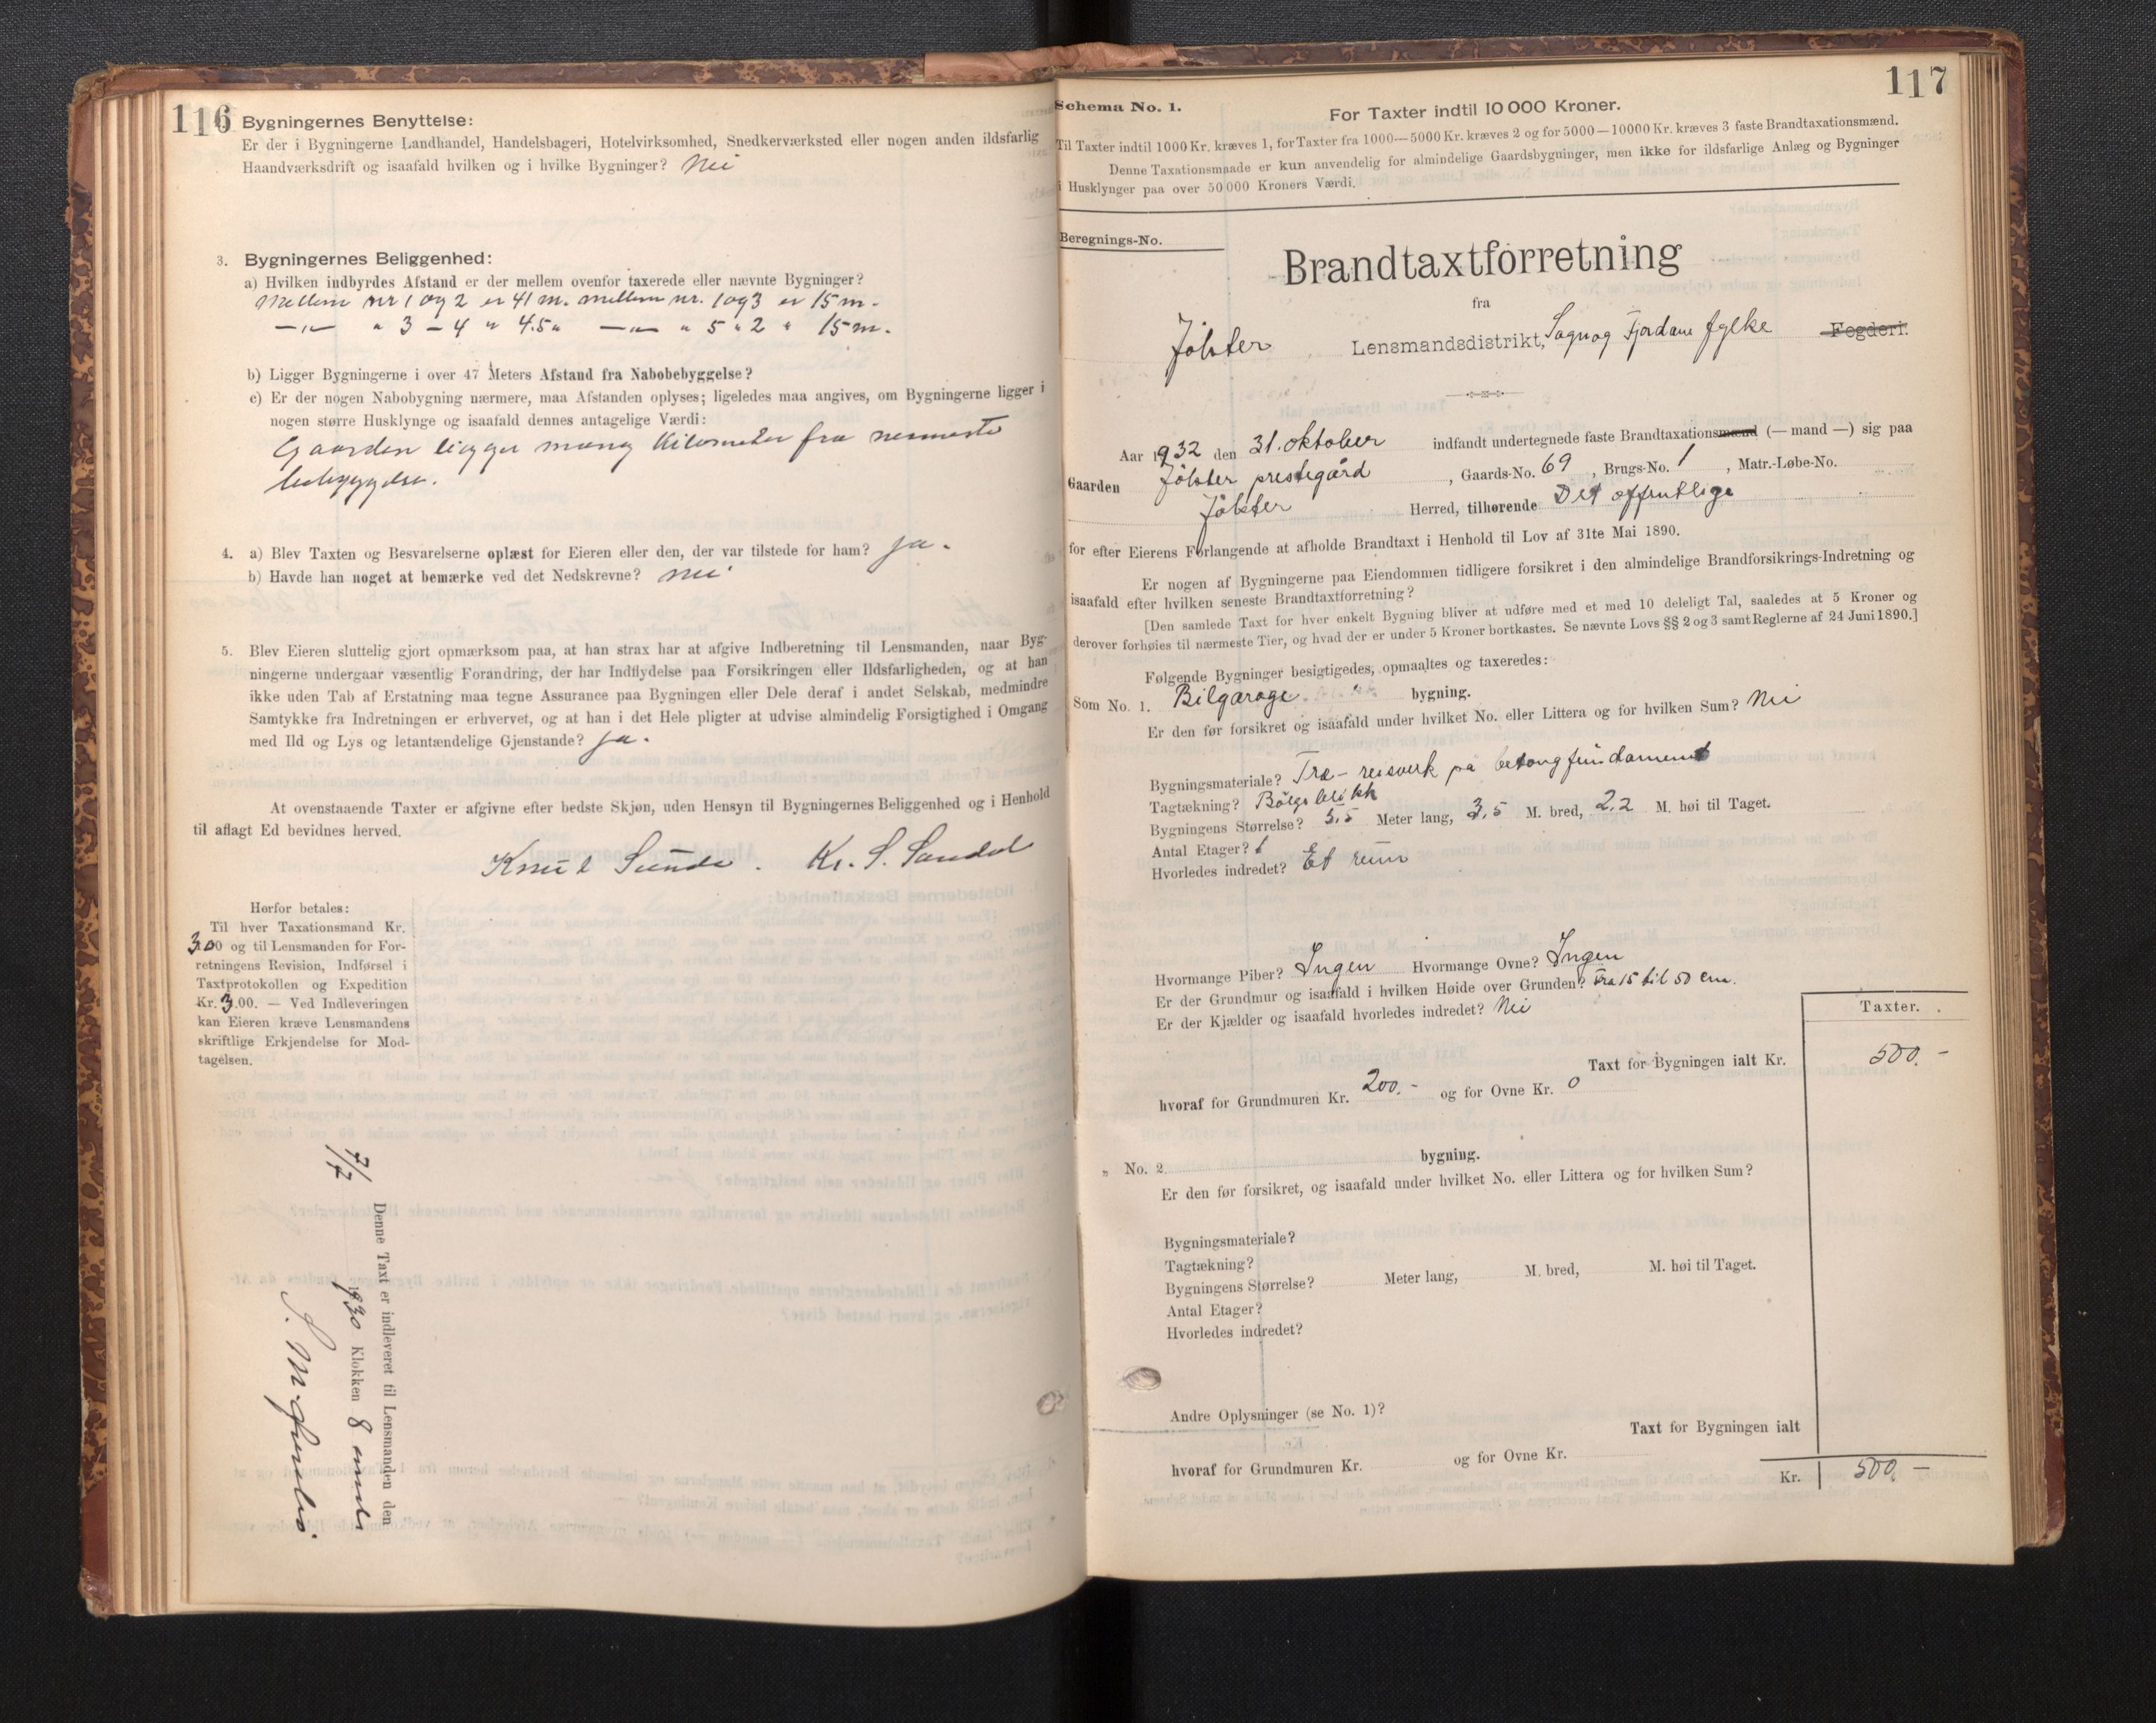 116
Bygningernes Benyttelse:
Er der i Bygningerne Landhandel, Handelsbageri, Hotelvirksomhed, Snedkerværksted eller nogen anden ildsfarlig
Haandværksdrift og isaafald hvilken og i hvilke Bygninger? Nei
3. Bygningernes Beliggenhed:
a) Hvilken indbyrdes Afstand er der mellem ovenfor taxerede eller nævnte Bygninger?
Mellem nr 1 og 2 er 41 m. mellem nr. 1 og 3 er 15 m.
—„— „ 3 – 4 „ 4.5 „ —„— „ 5 „ 2 „ 15 m.
b) Ligger Bygningerne i over 47 Meters Afstand fra Nabobebyggelse?
c) Er der nogen Nabobygning nærmere, maa Afstanden oplyses; ligeledes maa angives, om Bygningerne ligger i
nogen større Husklynge og isaafald dennes antagelige Værdi:
Gaarden ligger mang kilometer fra nermeste
bebyggelse.
4. a) Blev Taxten og Besvarelserne oplæst for Eieren eller den, der var tilstede for ham? ja.
b) Havde han noget at bemærke ved det Nedskrevne? nei
5. Blev Eieren sluttelig gjort opmærksom paa, at han strax har at afgive Indberetning til Lensmanden, naar Byg-
ningerne undergaar væsentlig Forandring, der har Indflydelse paa Forsikringen eller Ildsfarligheden, og at han
ikke uden Tab af Erstatning maa tegne Assurance paa Bygningen eller Dele deraf i andet Selskab, medmindre
Samtykke fra Indretningen er erhvervet, og at han i det Hele pligter at udvise almindelig Forsigtighed i Omgang
med Ild og Lys og letantændelige Gjenstande? ja.
At ovenstaaende Taxter er afgivne efter bedste Skjøn, uden Hensyn til Bygningernes Beliggenhed og i Henhold
til aflagt Ed bevidnes herved.
Knut Sunde. Kr. S. Sandal
Herfor betales:
Til hver Taxationsmand Kr.
3.00 og til Lensmanden for For-
retningens Revision, Indførsel i
Taxtprotokollen og Expedition
Kr. 3.00. — Ved Indleveringen
kan Eieren kræve Lensmandens
skriftlige Erkjendelse for Mod-
tagelsen.
Denne Taxt er indleveret til Lensmanden den
7/7 1930 Klokken 8
117
Schema No. 1.
For Taxter indtil 10 000 Kroner.
Til Taxter indtil 1000 Kr. kræves 1, for Taxter fra 1000—5000 Kr. kræves 2 og for 5000—10000 Kr. kræves 3 faste Brandtaxationsmænd.
Denne Taxationsmaade er kun anvendelig for almindelige Gaardsbygninger, men ikke for ildsfarlige Anlæg og Bygninger
i Husklynger paa over 50 000 Kroners Værdi.
Beregnings-No.
Brandtaxtforretning
fra
Jølster Lensmandsdistrikt, Sogn og Fjordane fylke Fogderi.
Aar 1932 den 31. oktober indfandt undertegnede faste Brandtaxationsmænd (— mand —) sig paa
Gaarden Jølster prestegård, Gaards-No. 69, Brugs-No. 1, Matr.-Løbe-No.
Jølster Herred, tilhørende Det offentlige
for efter Eierens Forlangende at afholde Brandtaxt i Henhold til Lov af 31te Mai 1890.
Er nogen af Bygningerne paa Eiendommen tidligere forsikret i den almindelige Brandforsikrings-Indretning og
isaafald efter hvilken seneste Brandtaxtforretning?
[Den samlede Taxt for hver enkelt Bygning bliver at udføre med et med 10 deleligt Tal, saaledes at 5 Kroner og
derover forhøies til nærmeste Tier, og hvad der er under 5 Kroner bortkastes. Se nævnte Lovs §§ 2 og 3 samt Reglerne af 24 Juni 1890.]
Følgende Bygninger besigtigedes, opmaaltes og taxeredes:
Som No. 1. Bilgarage bygning.
Er den før forsikret og isaafald under hvilket No. eller Littera og for hvilken Sum? Nei
Bygningsmateriale? Træ – reisverk på betongfundament
Tagtækning? Bølgeblikk
Bygningens Størrelse? 5,5 Meter lang, 3,5 M. bred, 2,2 M. høi til Taget.
Antal Etager? 1
Hvorledes indredet? Et rum
Hvormange Piber? Ingen Hvormange Ovne? Ingen
Er der Grundmur og isaafald i hvilken Høide over Grunden? Fra 15 til 50 cm.
Er der Kjælder og isaafald hvorledes indredet? Nei
Taxter.
Taxt for Bygningen ialt Kr. 500.-
hvoraf for Grundmuren Kr. 200.- og for Ovne Kr. 0
„ No. 2. bygning.
Er den før forsikret, og isaafald under hvilket No. eller Littera og for hvilken Sum?
Bygningsmateriale?
Tagtækning?
Bygningens Størrelse? Meter lang, M. bred, M. høi til Taget.
Antal Etager?
Hvorledes indredet?
Andre Oplysninger (se No. 1)?
Taxt for Bygningen ialt
hvoraf for Grundmuren Kr. og for Ovne Kr.
Kr. 500.-